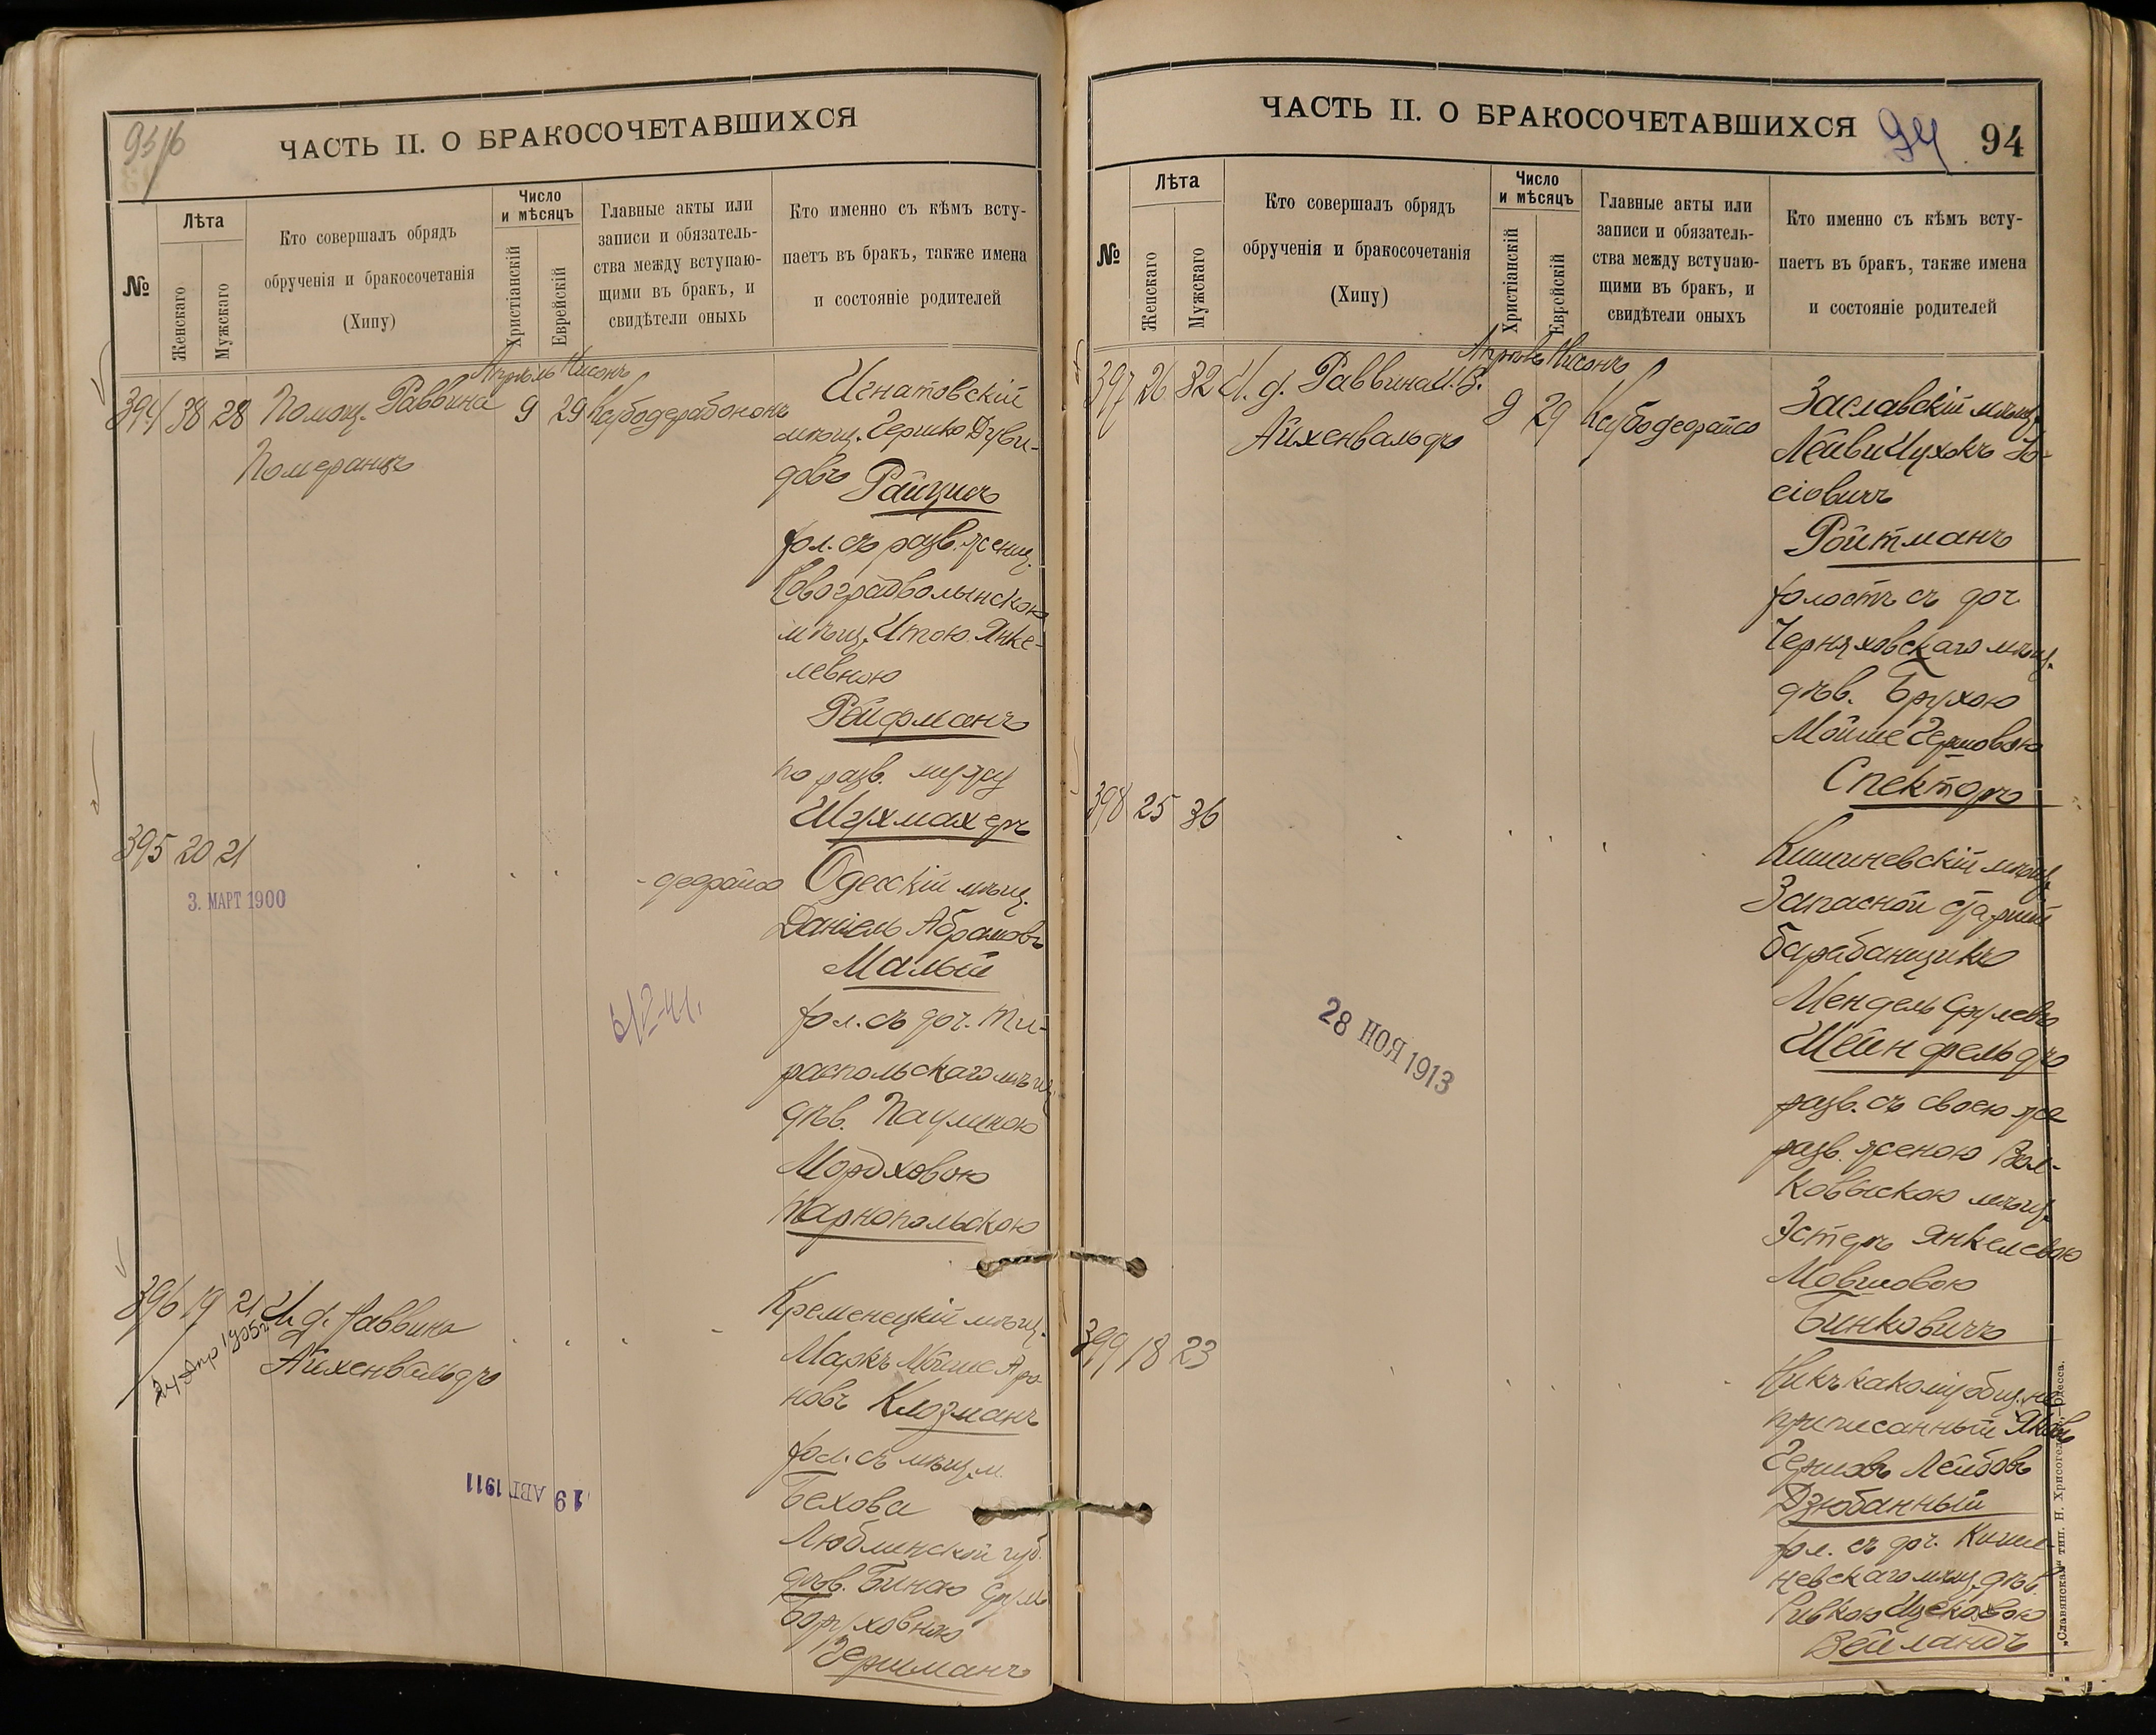 93 1/6
ЧАСТЬ II. О БРАКОСОЧЕТАВШИХСЯ
№
Лѣта
Женскаго
Мужскаго
Кто совершалъ обрядъ
обрученія и бракосочетанія
(Хипу)
Число
и мѣсяцъ
Христіанскій
Еврейскій
Главные акты или
записи и обязатель-
ства между вступаю-
щими въ бракъ, и
свидѣтели оныхь
Кто именно съ кѣмъ всту-
паетъ въ бракъ, также имена
и состояніе родителей
Апрѣль Нисонъ
394 38 28 Помощ. Раввина 9 29
Померанцъ
Игнатовскій
мѣщ. Гершко Дуви-
довъ Райцисъ
хол. съ разв. женщ.
Новоградволынскою
мѣщ. Итою Янке-
левною
Ройфманъ
по разв. мужу
Шухмахеръ
395 20 21
3. МАРТ 1900
Одесскій мѣщ.
Даніель Абрамовъ
Малый
хол. съ доч. Ти-
распольскаго мѣщ.
дѣв. Паулиною
Мордховою
Тарнопольскою
396 19 21 И. д. Раввина
Айхенвальдъ
Кременецкій мѣщ.
Маркъ Мойше Аро-
новъ Клозманъ
хол. съ мѣщ. м.
Бехова
Люблинской губ.
дѣв. Биною Срул
Борховною
Герцманъ
19 АВГ 1911
ЧАСТЬ II. О БРАКОСОЧЕТАВШИХСЯ
94
94
№
Лѣта
Женскаго
Мужскаго
Кто совершалъ обрядъ
обрученія и бракосочетанія
(Хипу)
Число
и мѣсяцъ
Христіанскій
Еврейскій
Главные акты или
записи и обязатель-
ства между вступаю-
щими въ бракъ, и
свидѣтели оныхъ
Кто именно съ кѣмъ всту-
паетъ въ бракъ, также имена
и состояніе родителей
Апрѣль Нисонъ
397 26 32 И. д. Раввина 9 29
Айхенвальдъ
Заславскій мѣщ.
Лейви Ицхокъ Іо-
сіовичъ
Ройтманъ
холостъ съ доч.
Черняховскаго мѣщ.
дѣв. Брухою
Мойше Гершовою
Спекторъ
398 25 36
Кишиневскій мѣщ.
Запасной старшій
барабанщикъ
Мендель Срулевъ
Шейнфельдъ
разв. съ своею же
разв. женою Вол-
ковыскою мѣщ.
Эстеръ Янкелевою
Мовшовою
Бинковичъ
28 НОЯ 1913
399 18 23
Ни къ какому общ. не
приписанный Яковъ
Гершовъ Лейбовъ
Дзюбанный
хол. съ доч. Киши-
невскаго мѣщ. дѣв.
Ривкою Ицековою
Вейландъ
„Славянская" тип. Н. Хрисогелосъ, Одесса.